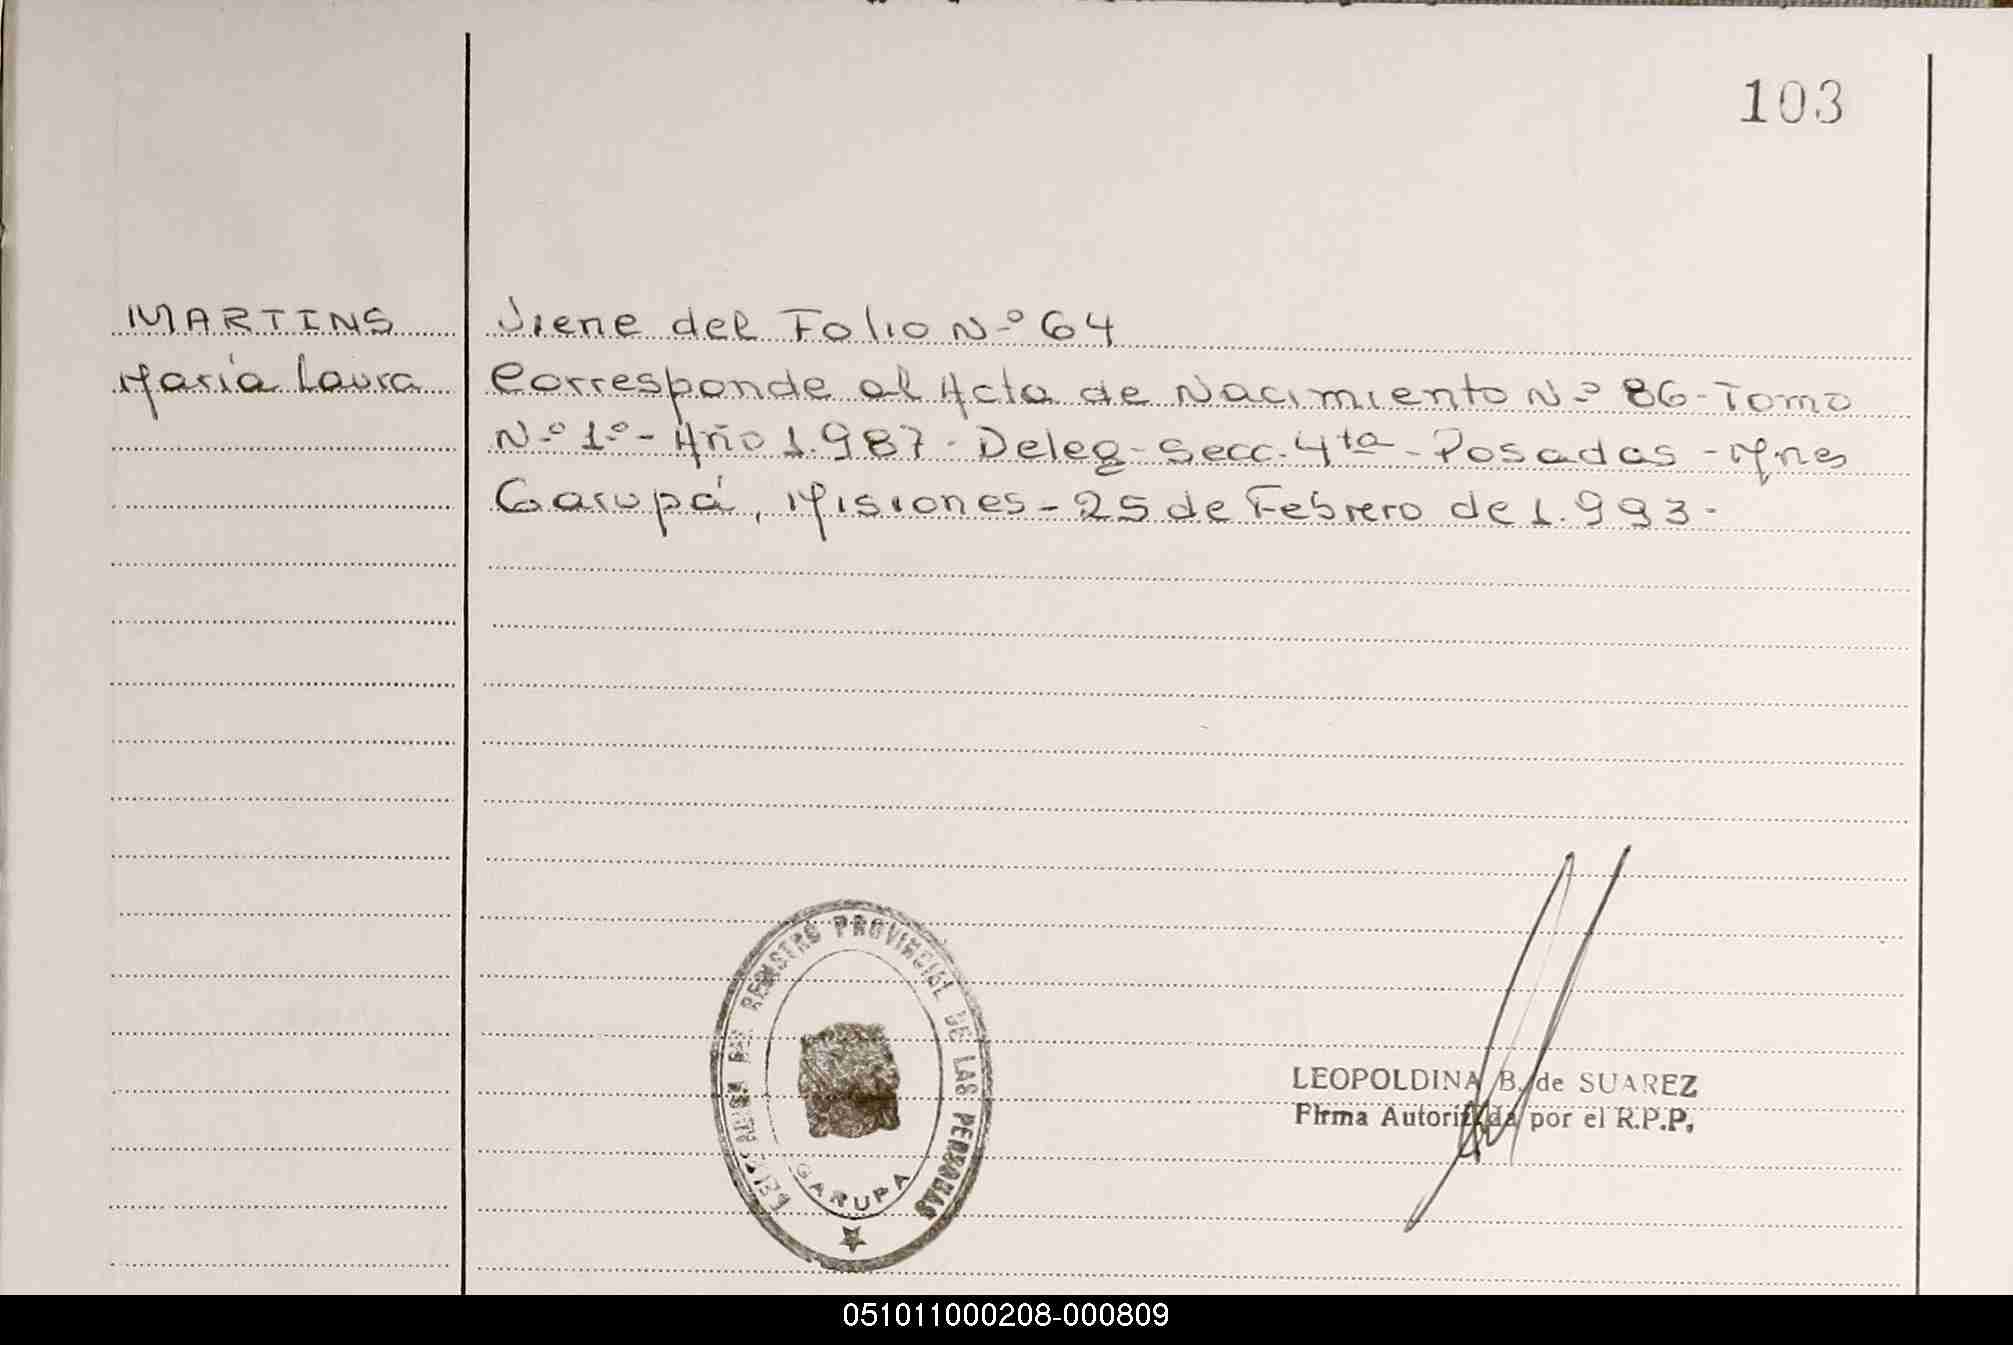 103
MARTINS
María Laura
Viene del Folio N-º 64
Corresponde al Acta de Nacimiento N-º 86-Tomo
N-º 1º- Año 1.987- Deleg- Secc. 4ta - Posadas - Mnes
Garupá, Misiones - 25 de Febrero de 1.993-
REGISTRO PROVINCIAL DE LAS PERSONAS
GARUPA
LEOPOLDINA B. de SUAREZ
Firma Autorizada por el R.P.P.
051011000208-000809